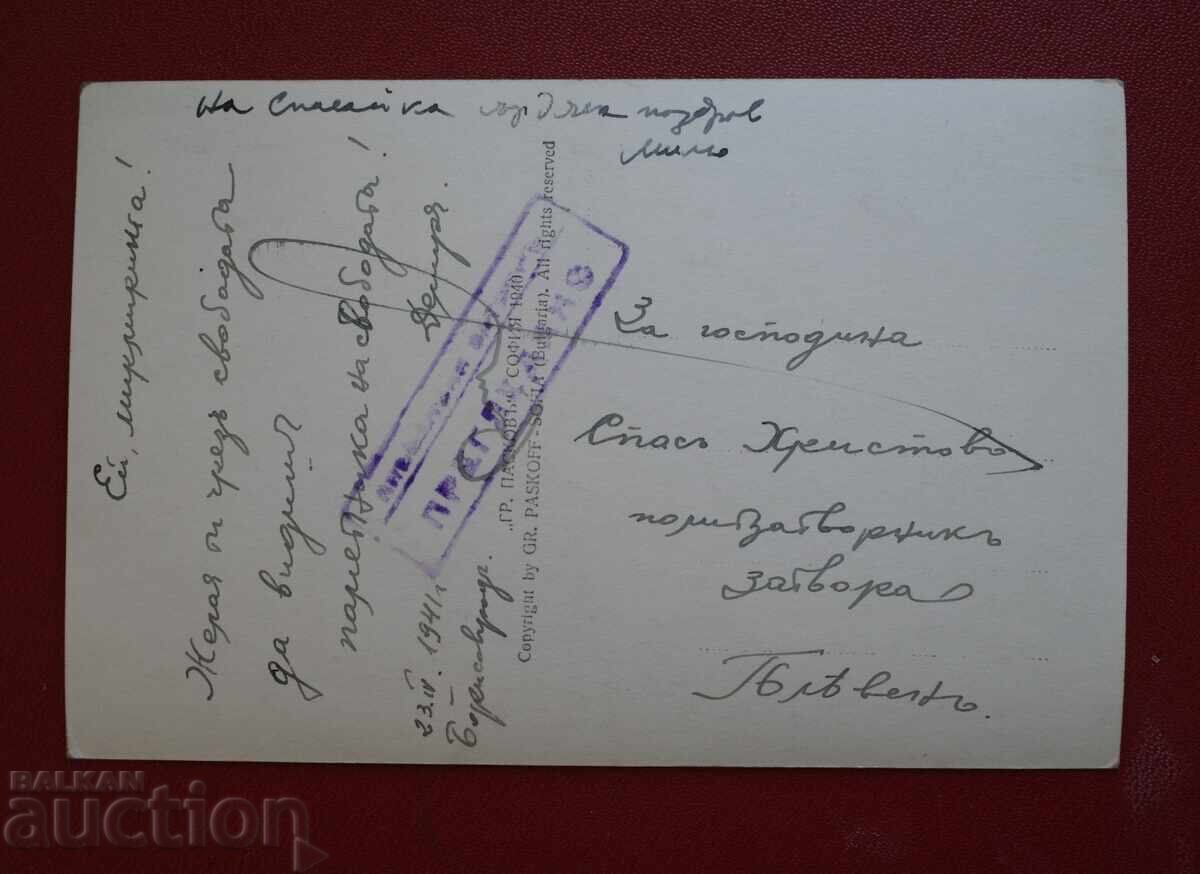 На Спасайка сърдечен поздрав
Мимо
Ей, микимринта!
Желая ти чрезъ свободата
да видиш
паметника на свободата!
23.IV.1941 г.
Борисовград.
ПРЕГЛЕДАНО
„ГР. ПАСКОВЪ" СОФИЯ 1940
Copyright by GR. PASKOFF - SOFIA (Bulgaria). All rights reserved
За господина
Спасъ Христовъ
политзатворникъ
затвора
Плѣвенъ.
BALKAN
auction